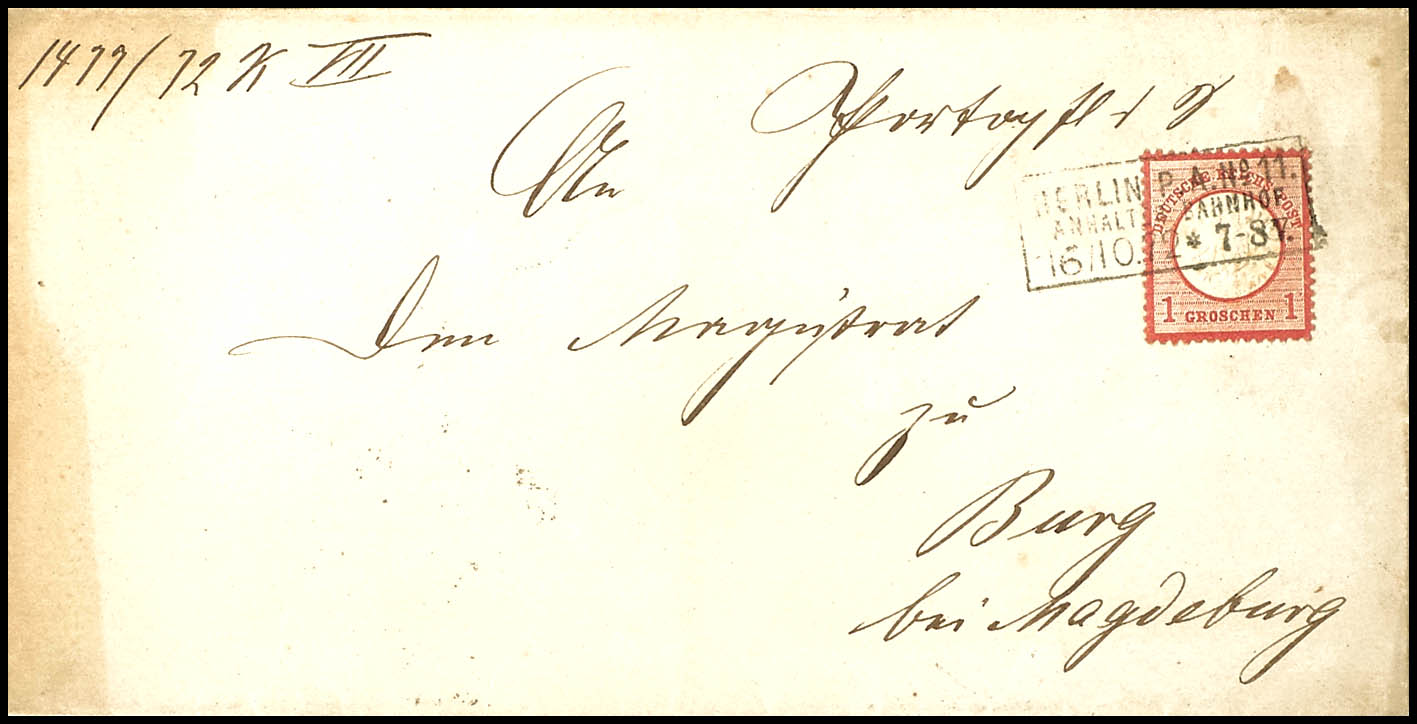 1477/72 K VII
Portopfl. d S
An
Den Magistrat
zu
Burg
bei Magdeburg
BERLIN P. A. No. 11.
ANHALT. BAHNHOF
16/10.72 * 7-8 V.
DEUTSCHE REICHS-POST
1 GROSCHEN 1